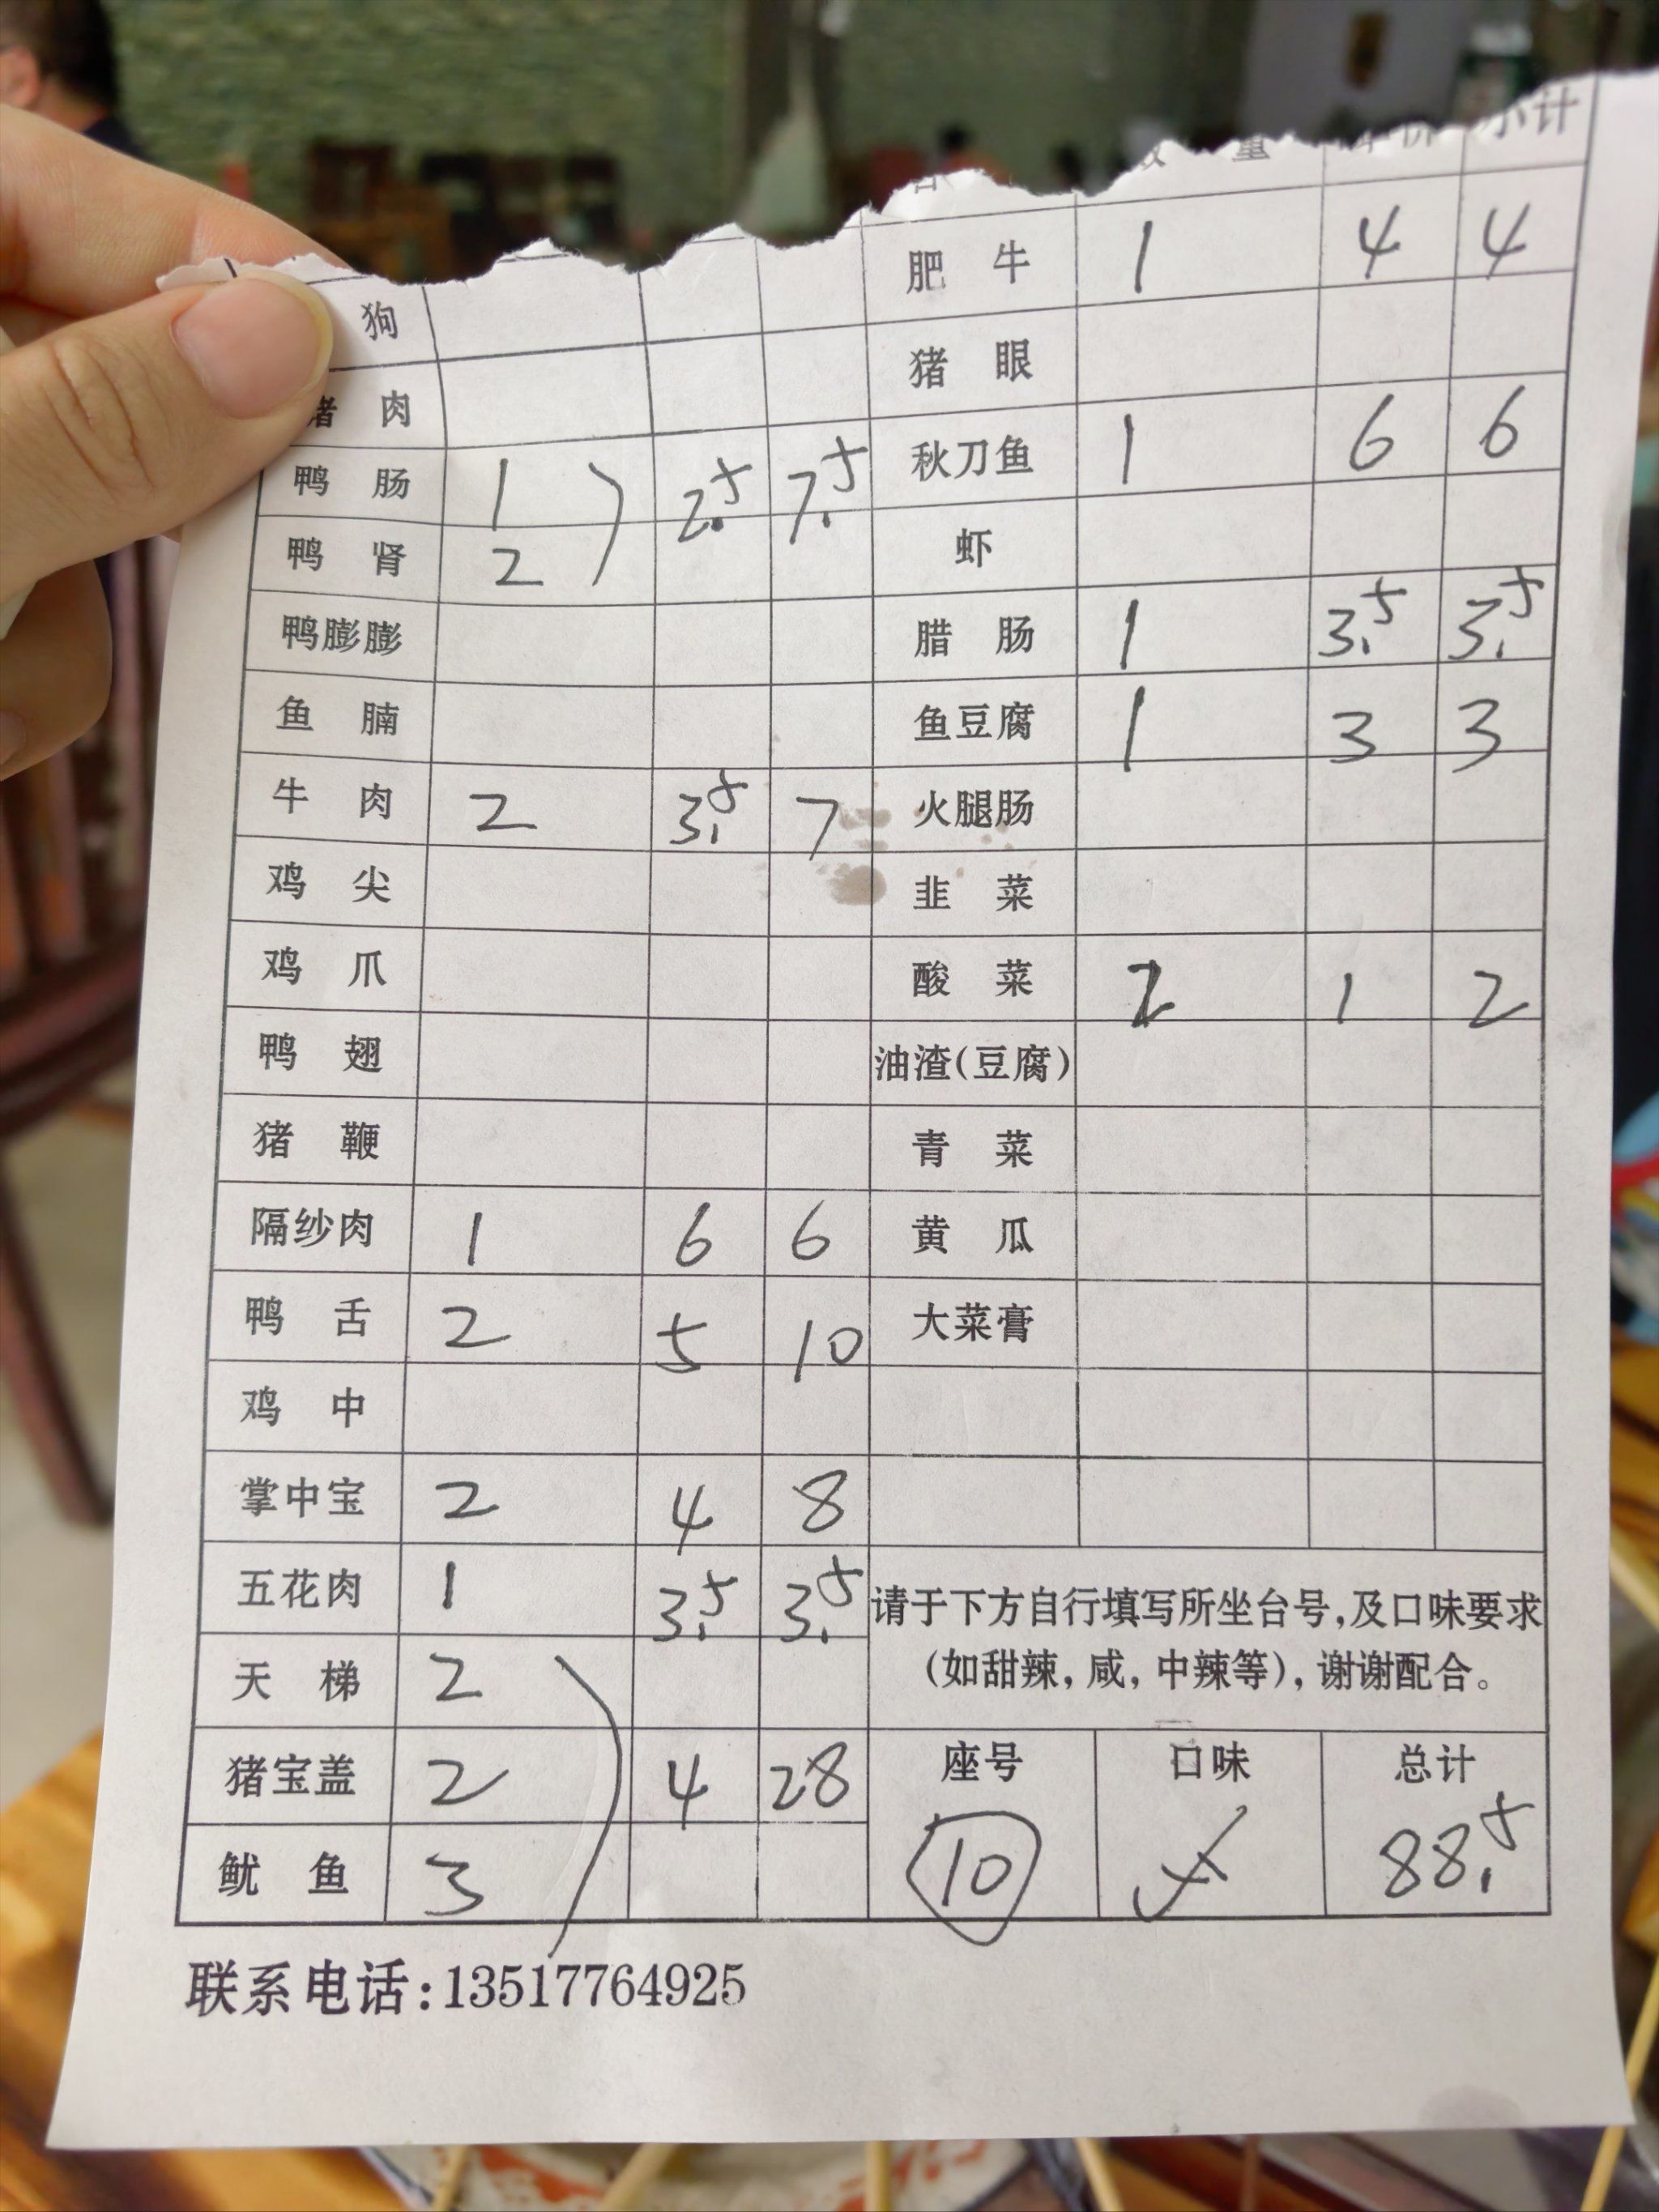 量 单价 小计
狗
猪 肉
鸭 肠 1 2.5 7.5
鸭 肾 2
鸭膨膨
鱼 腩
牛 肉 2 3.5 7
鸡 尖
鸡 爪
鸭 翅
猪 鞭
隔纱肉 1 6 6
鸭 舌 2 5 10
鸡 中
掌中宝 2 4 8
五花肉 1 3.5 3.5
天 梯 2
猪宝盖 2 4 28
鱿 鱼 3
肥 牛 1 4 4
猪 眼
秋刀鱼 1 6 6
虾
腊 肠 1 3.5 3.5
鱼豆腐 1 3 3
火腿肠
韭 菜
酸 菜 2 1 2
油渣(豆腐)
青 菜
黄 瓜
大菜膏
请于下方自行填写所坐台号,及口味要求
(如甜辣,咸,中辣等),谢谢配合。
座号 口味 总计
10 88.5
联系电话:13517764925